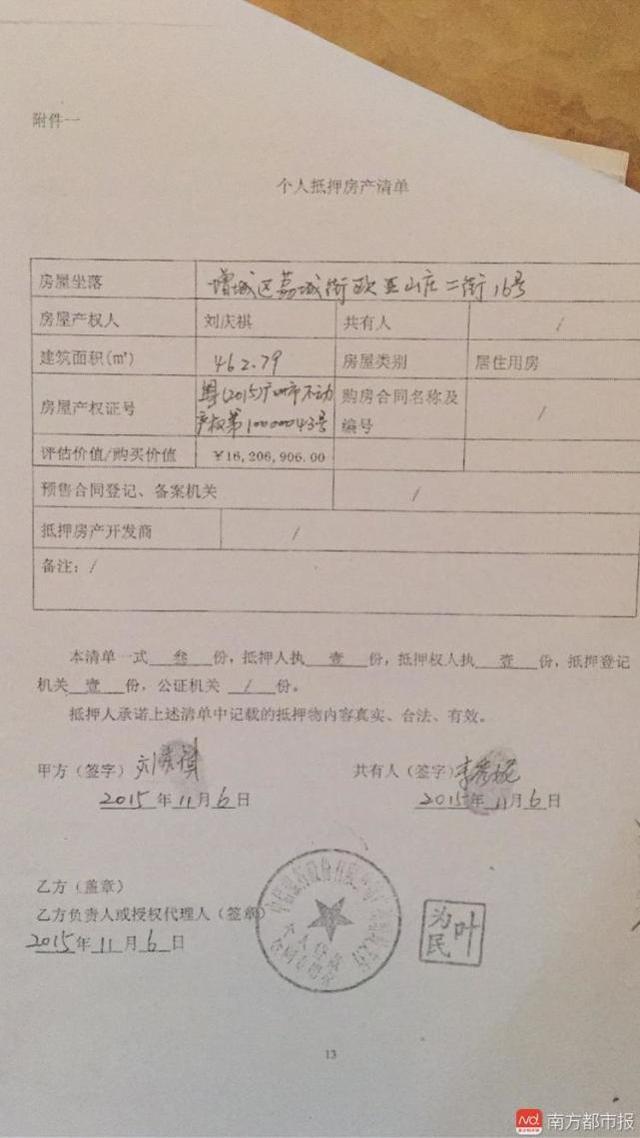 附件一
个人抵押房产清单
房屋坐落 增城区荔城街欧亚山庄二街16号
房屋产权人 刘庆祺 共有人 /
建筑面积(㎡) 462.79 房屋类别 居住用房
房屋产权证号 粤(2015)广州市不动产权第10000043号 购房合同名称及编号 /
评估价值/购买价值 ¥16,206,906.00
预售合同登记、备案机关 /
抵押房产开发商 /
备注：/
本清单一式 叁 份，抵押人执 壹 份，抵押权人执 壹 份，抵押登记
机关 壹 份，公证机关 / 份。
抵押人承诺上述清单中记载的抵押物内容真实、合法、有效。
甲方（签字） 刘庆祺 共有人（签字）
2015年11月6日 2015年11月6日
乙方（盖章）
乙方负责人或授权代理人（签章）
2015年11月6日
个人信贷
合同专用章
叶为民
13
南方都市报